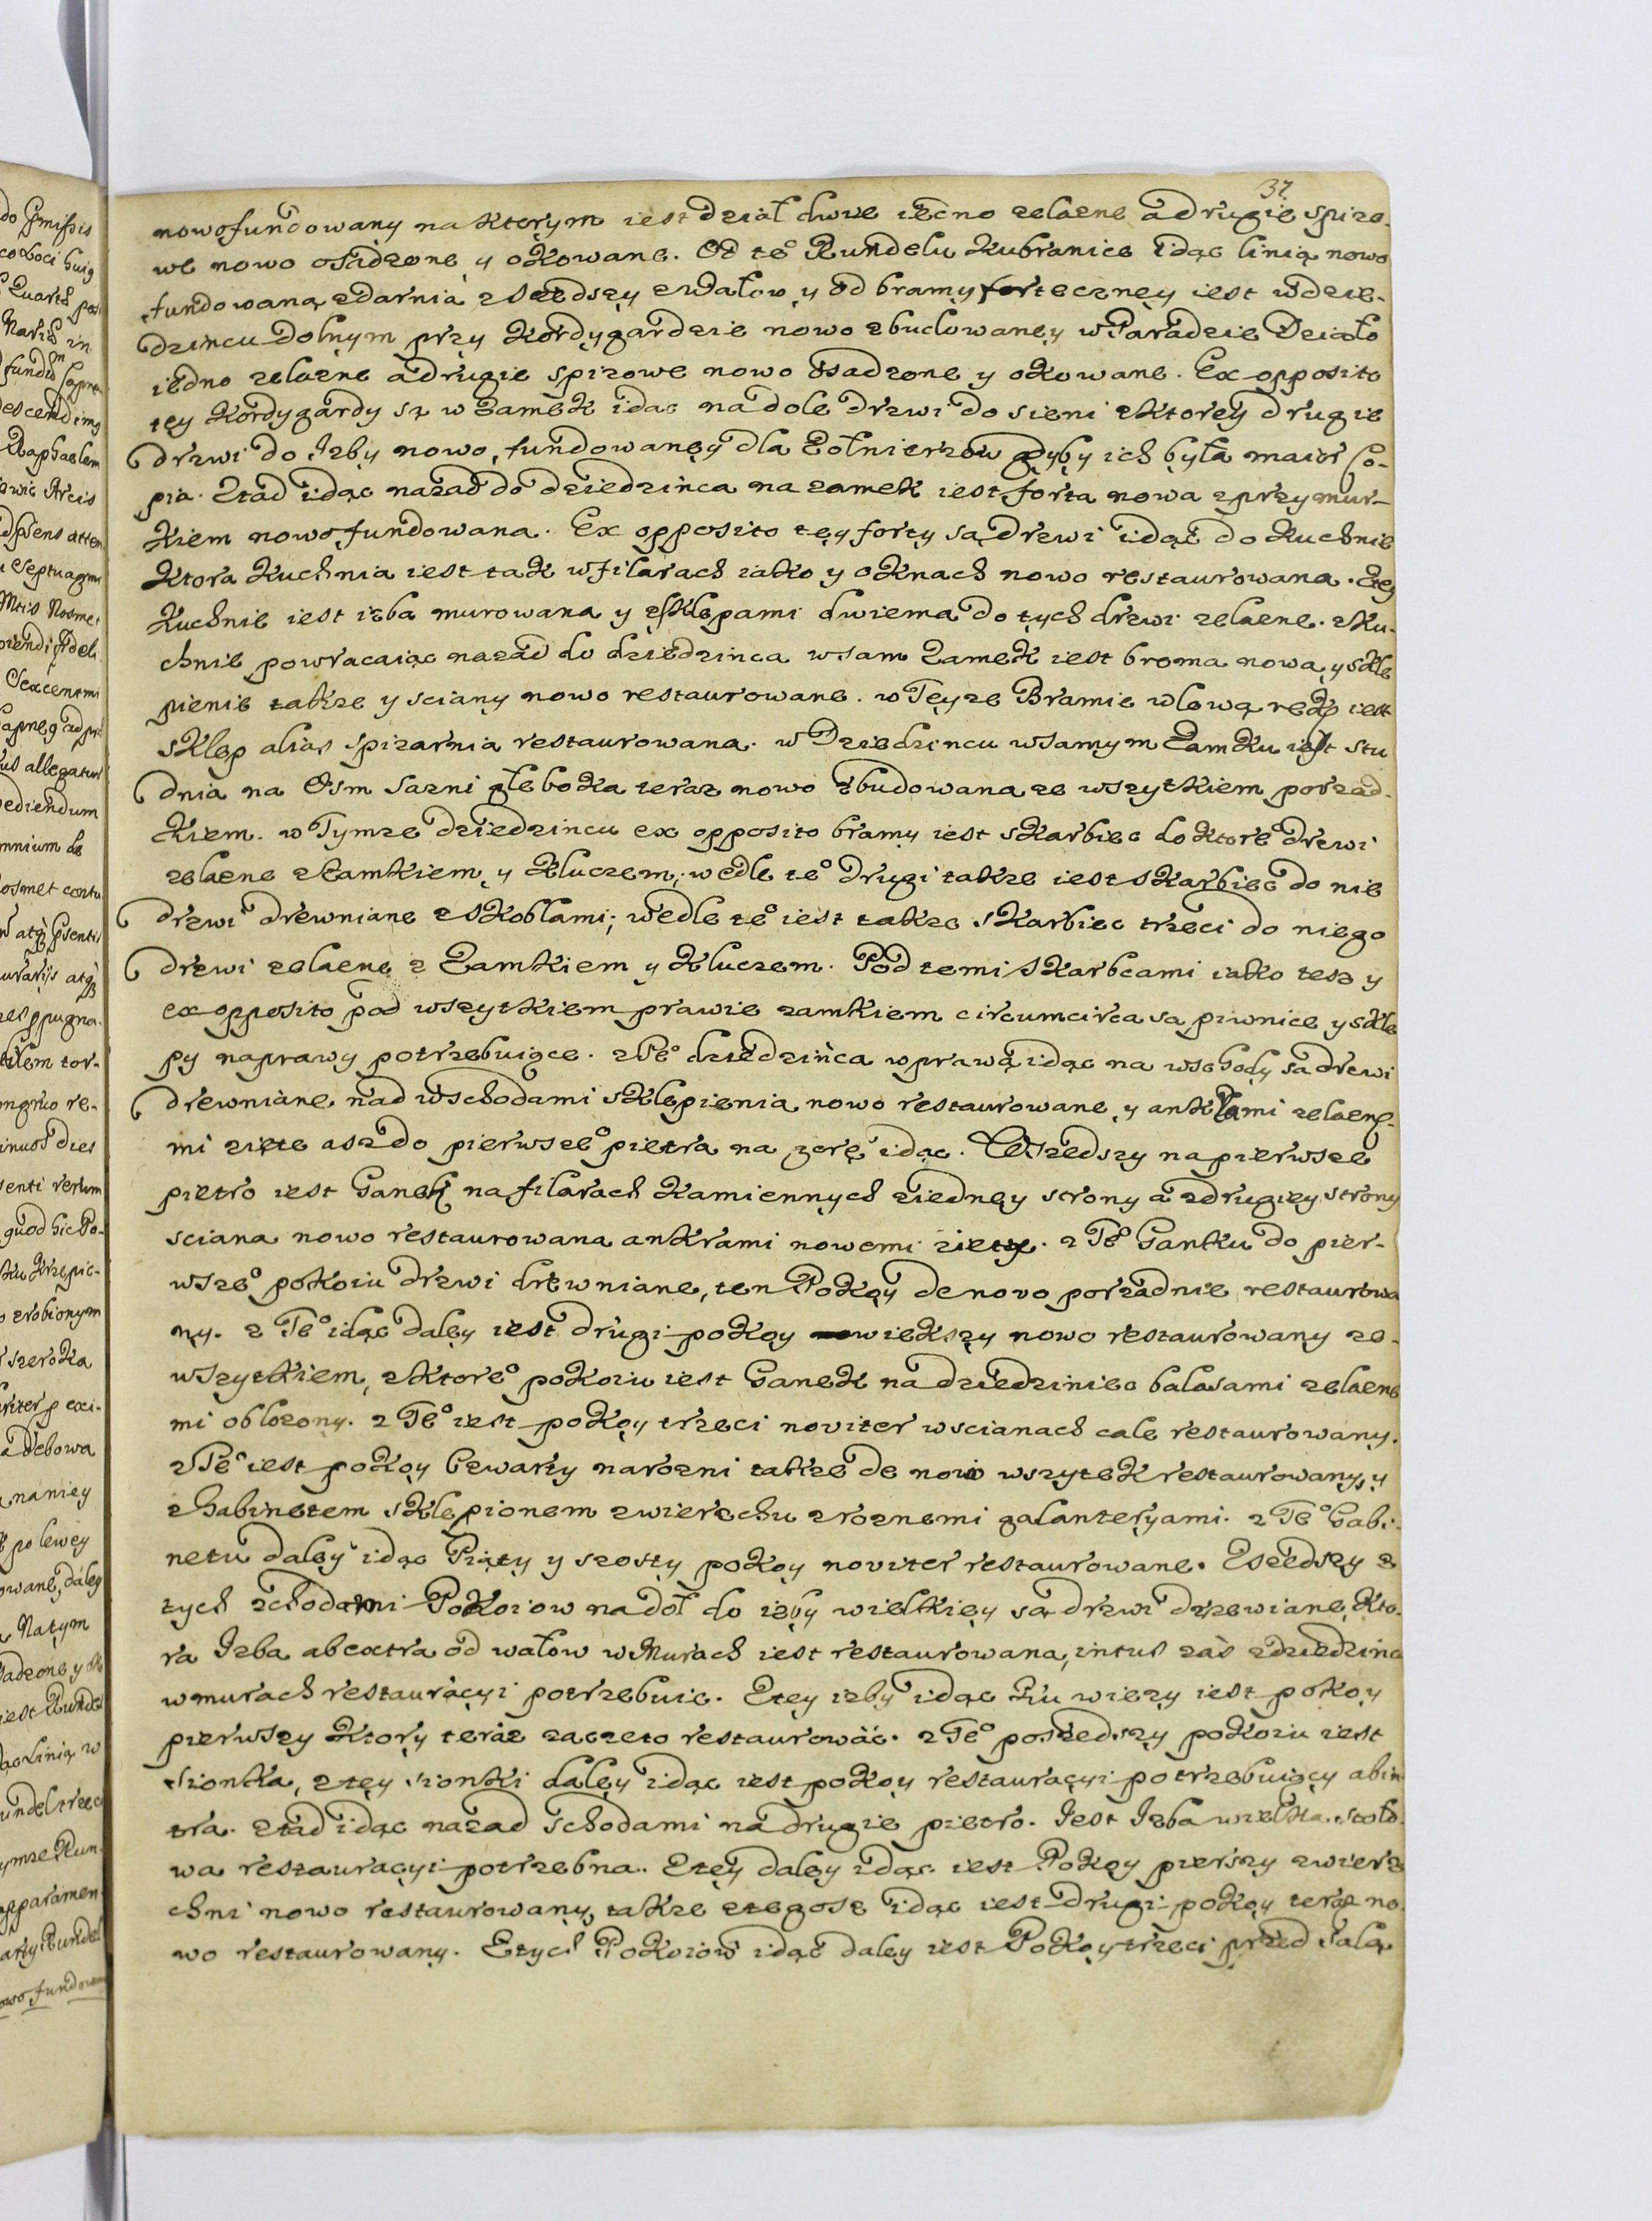 37
nowofundowany na Ktorym iest dział dwie iedno zelazne a drugie spizo-
we nowo osadzone y oKowane. Od te° Rundelu Kubranice idąc linią nowo
fundowaną zdarnia zszedszy zwałow y od bramy forteczney iest w dzie-
dzincu dolnym przy Kordygardzie nowo zbudowaney w Paradzie Działo
iedno zelazne a drugie spizowe nowo osadzone y oKowane. Ex opposito
tey Kordygardy są w ZameK idac na dole drzwi do sieni zKtorey drugie
drzwi do Izby nowo fundowaney dla Zołnierzow gdyby ich była maior Co-
pia. Ztad idąc nazad do dziedzinca na zameK iest forta nowa zprzymur-
Kiem nowofundowana. Ex opposito tey forty są drzwi idąc do Kuchnie
Ktora Kuchnia iest taK w filarach iako y oKnach nowo restaurowana. Ztey
Kuchnie iest izba murowana y zsKlepami dwiema do tych drzwi zelazne. zKu-
chnie powracaiąc nazad do dziedzinca w sam ZameK iest broma nowa y sKle
pienie taKze y sciany nowo restaurowane. w Teyze Bramie w lewą reKę iest
sKlep alias spizarnia restaurowana. w Dziedzincu w samym ZamKu iest stu
dnia na Osm sazni głeboKa teraz nowo zbudowana ze wszytKiem porzad-
Kiem. w Tymze dziedzincu ex opposito bramy iest sKarbiec do Ktore° drzwi
zelazne zZamKiem y Kluczem; wedle te° drugi taKze iest sKarbiec do nie
drzwi drewniane zsKoblami; wedle te° iest taKze sKarbiec trzeci do niego
drzwi zelazne z ZamKiem y Kluczem. Pod temi sKarbcami iaKo tesz y
ex opposito pod wszytKiem prawie zamKiem circumcirca są piwnice y sKle
py naprawy potrzebuiące. zTe° dziedzinca w prawą idąc na wschody są drzwi
drewniane nad wschodami sKlepienia nowo restaurowane y anKrami zelazne-
mi ziete asz do pierwsze° pietra na gorę idąc. Wszedszy na pierwsze
pietro iest GaneK na filarach Kamiennych ziedney strony a zdrugiey strony
sciana nowo restaurowana anKrami nowemi ziete. z Te° GanKu do pier-
wsze° poKoiu drzwi drewniane, ten PoKoy de novo porządnie restaurowa
ny. z Te° idąc daley iest drugi poKoy wiekszy nowo restaurowany ze-
wszytKiem, zKtore° poKoiu iest GaneK na dziedziniec balasami zelazne
mi oblozony. z Te° iest poKoy trzeci noviter w scianach cale restaurowany.
z Te° iest poKoy Czwarty narozni taKze de novo wszyteK restaurowany, y
zGabinetem sKlepionem zwierzchu zroznemi galanteryami. z Te° Gabi-
netu daley idąc Piąty y szosty poKoy noviter restaurowane. Zszedszy z
tych zchodami PoKoiow na doł do izby wielKiey są drzwi drzewiane, Kto-
ra Izba ab extra od wałow w Murach iest restaurowana, intus zas zdziedzinca
w murach restauracyi potrzebuie. Ztey izby idąc Ku wiezy iest poKoy
pierwszy Ktory teraz zaczeto restaurowac. z Te° poszedszy poKoiu iest
sionKa, ztey sionKi daley idąc iest poKoy restauracyi potrzebuiący abin-
tra. ztad idąc nazad schodami na drugie pietro. Iest Izba wielKa stolo-
wa restauracyi potrzebna. Ztey daley idąc iest PoKoy pierszy zwierz
chni nowo restaurowany, taKze ztegosz idąc iest drugi poKoy teraz no-
wo restaurowany. Ztych PoKoiow idąc daley iest PoKoy trzeci przed salą